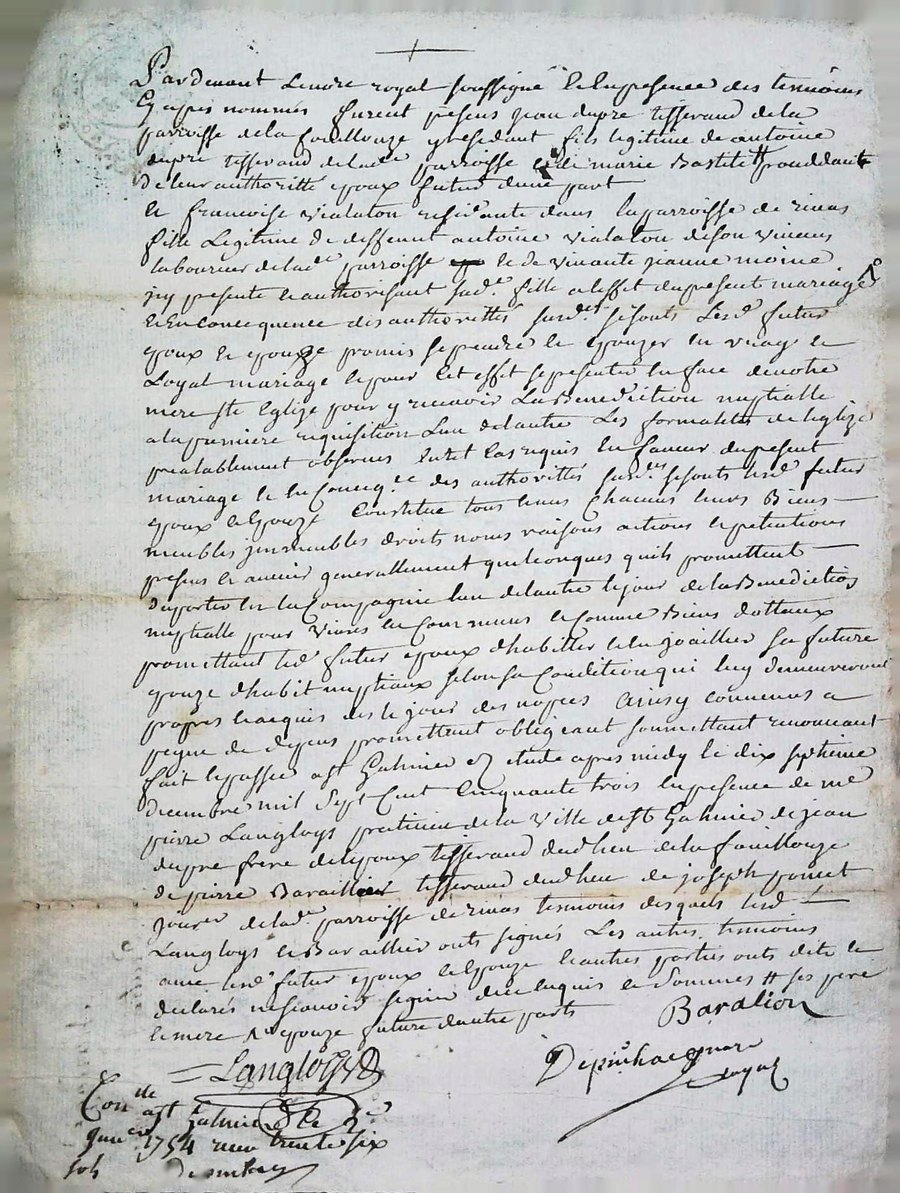 Pardevant Lenore royal soussigné & en presence des temoins
Cy apres nommés furent presens jean dupre tisserand de la
parroisse de la fouillouze y residant fils legitime de antoine
dupre tisserand de lade parroisse & de marie Bastide # proceddant
de leur authoritté epoux futur dune part
Et francoise vialaton residante dans la parroisse de rivas
fille Legitime de deffunt antoine vialaton de son vivant
laboureur de lade parroisse et de vivante jeanne moine
jcy presente et authorisant sade fille a leffet du present mariage
& En consequence des authorittés susdes se sonts lesds futur
epoux et epouze promis se prendre et epouzer en vray et
Loyal mariage et pour cet effet se presenter en face de notre
mere ste Eglize pour y recevoir La Benediction nuptialle
a la premiere requisition Lun de lautre Les formalités de leglize
prealablement observees en tel cas requis En faveur du present
mariage et En Conseqce des authorittés susdes se sonts lesds futur
epoux et epouze Constitué tous leurs Chacuns leurs Biens
meubles jmmeubles droits noms raisons actions et petentions
presens et avenir generallement quelconques quils promettent
daporter en la Compagnie lun de lautre le jour de la Benediction
nuptialle pour vivre en Commun et comme Biens dottaux
promettant led futur epoux dhabiller et en joaillier sa future
epouze dhabit nuptiaux selon sa Condition qui luy demeureront
propres et acquis des le jour des nopces Ainsy convenus a
peyne de depens promettant obligeant soumettant renonceant
fait et passé a st Galmier en etude apres midy le dix septieme
decembre mil sept Cent Cinquante trois en presence de me
pierre Langloys praticien de la ville de st Galmier de jean
dupre frere de lepoux tisserand dudt lieu de la fouillouze
de pierre Baraillier tisserand dudt lieu de joseph poncet
jourer de lade parroisse de rivas temoins desquels lesd
Langloys et Baraillier onts signés Les autres temoins
avec lesd futur epoux et epouze et autres parties onts dits et
declarés ne scavoir signer de ce enquis et Sommés # ses pere
et mere & epouze future dautre parts
Baralion
Langloys
Depuichac nore
royal
Conlle a st Galmier le 2e
janer 1754 receu trente six
sols